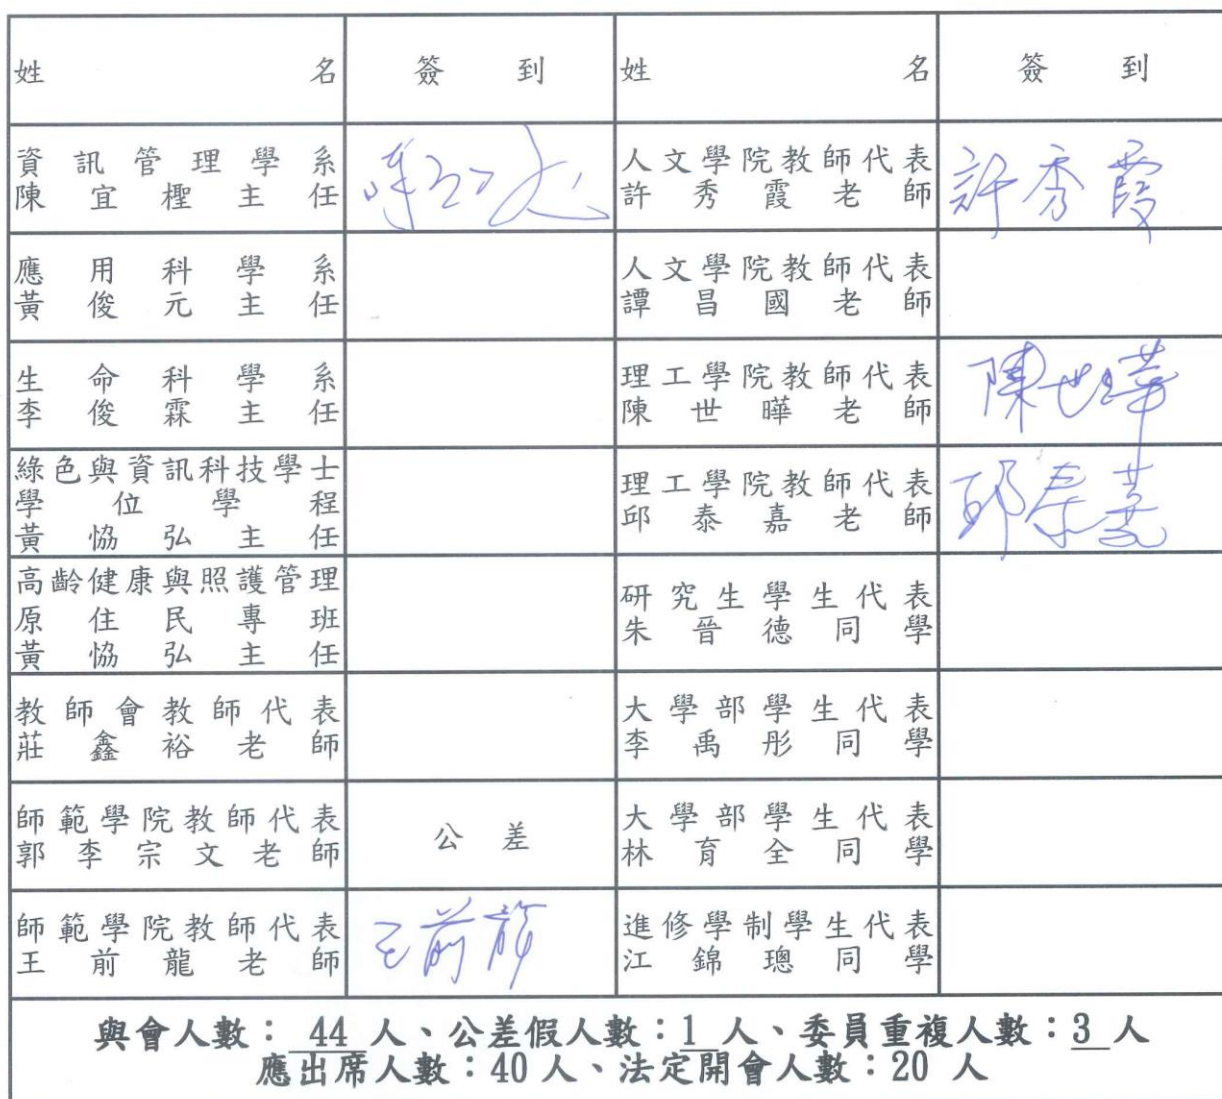 姓名 簽到 姓名 簽到
資訊管理學系
陳宜檉主任
人文學院教師代表
許秀霞老師
許秀霞
應用科學系
黃俊元主任
人文學院教師代表
譚昌國老師
生命科學系
李俊霖主任
理工學院教師代表
陳世曄老師
陳世曄
綠色與資訊科技學士
學位學程
黃恊弘主任
理工學院教師代表
邱泰嘉老師
邱泰嘉
高齡健康與照護管理
原住民專班
黃恊弘主任
研究生學生代表
朱晉德同學
教師會教師代表
莊鑫裕老師
大學部學生代表
李禹彤同學
師範學院教師代表
郭李宗文老師
公差
大學部學生代表
林育全同學
師範學院教師代表
王前龍老師
王前龍
進修學制學生代表
江錦璁同學
與會人數：44人、公差假人數：1人、委員重複人數：3人
應出席人數：40人、法定開會人數：20人